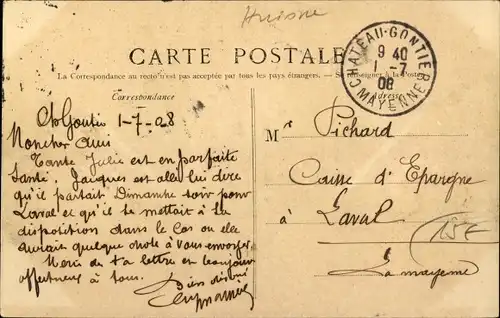 Huisne
CARTE POSTALE
La Correspondance au recto n'est pas acceptée par tous les pays étrangers. — Se renseigner à la Poste
CHATEAU-GONTIER
9 40
1 -7
08
MAYENNE
Correspondance
Adresse
Ch Gontier 1-7-08
Mon cher Ami
Tante Julie est en parfaite
Santé. Jacques est allé lui dire
qu'il partait Dimanche soir pour
Laval et qu'il se mettait à la
disposition dans le Cas ou elle
aurait quelque chose à vous envoyer.
Merci de ta lettre et toujours
affectueux à tous.
Bien
Mr Pichard
Caisse d'Epargne
à Laval
La mayenne
15F